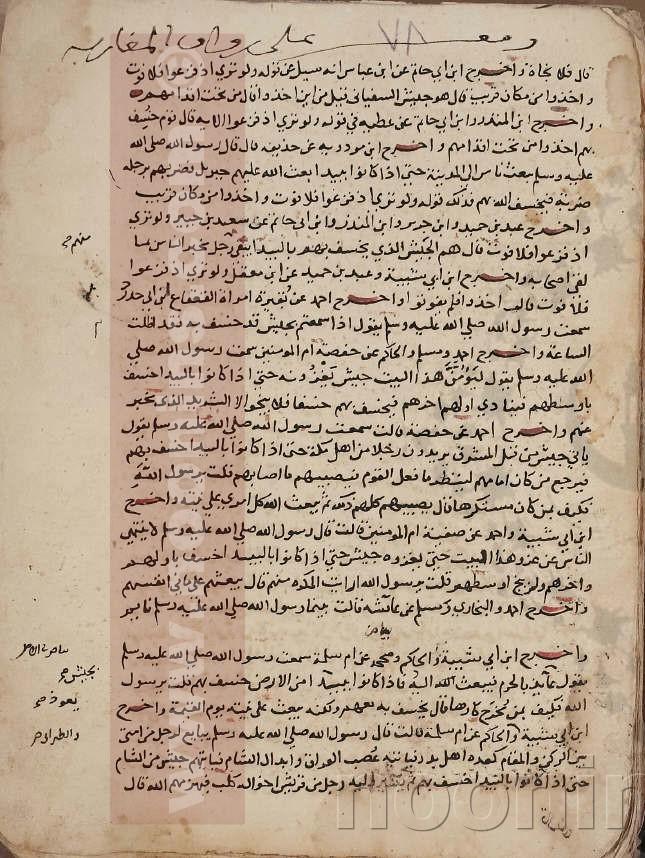 ومعـ على رواق المغاربه
٧٨
قال فلا نجاة واخرج ابن ابي حاتم عن ابن عباس انه سيل عن قوله ولو تري اذ فزعوا فلا فوت
واخذوا من مكان قريب قال هو جيش السفياني قيل من اين اخذوا قال من تحت اقدامهم
واخرج ابن المنذر وابن ابي حاتم عن عطيه في قوله ولو تري اذ فزعوا الايه قال قوم خسف
بهم اخذوا من تحت اقدامهم واخرج ابن مردويه عن حذيفة قال قال رسول الله صلى الله
عليه وسلم يبعث ناس الى المدينة حتى اذا كانوا ببيدا بعث الله عليهم جبريل فضربهم برجله
ضربة فيخسف الله بهم فذلك قوله ولو تري اذ فزعوا فلا فوت واخذوا من مكان قريب
واخرج عبد بن حميد وابن جرير وابن المنذر وابن ابي حاتم عن سعيد بن جبير ولو تري
اذ فزعوا فلا فوت قال هم الجيش الذي يخسف بهم بالبيدا يبقى رجل يخبر الناس بما
لقي اصحابه واخرج ابن ابي شيبة وعبد بن حميد عن ابن معقل ولو تري اذ فزعوا
فلا فوت قال اخذوا فلم يفوتوا واخرج احمد عن بقيرة امراة القعقاع ابن ابي حدرد
سمعت رسول الله صلى الله عليه وسلم يقول اذا سمعتم بجيش قد خسف به فقد اظلت
الساعة واخرج احمد ومسلم والحاكم عن حفصة ام المومنين سمعت رسول الله صلى
الله عليه وسلم يقول ليؤمن هذا البيت جيش يغزونه حتى اذا كانوا بالبيدا خسف
باوسطهم فينادي اولهم اخرهم فيخسف بهم خسفا فلا ينجوا الا الشريد الذي يخبر
عنهم واخرج احمد عن حفصة قالت سمعت رسول الله صلى الله عليه وسلم يقول
ياتي جيش من قبل المشرق يريدون رجلا من اهل مكة حتى اذا كانوا بالبيدا خسف بهم
فيرجع من كان امامهم لينظر ما فعل القوم فيصيبهم ما اصابهم قلت يرسول الله
فكيف بمن كان مستكرها قال يصيبهم كلهم ذلك ثم يبعث الله كل امري على نيته واخرج
ابن ابي شيبة واحمد عن صفية ام المومنين قالت قال رسول الله صلى الله عليه وسلم لا ينتهي
الناس عن غزو هذا البيت حتى يغزوه جيش حتى اذا كانوا بالبيدا خسف باولهم
واخرهم ولم ينج اوسطهم قلت يرسول الله ارايت المكره منهم قال يبعثهم على ما في انفسهم
واخرج احمد والبخاري ومسلم عن عائشه قالت بينما رسول الله صلى الله عليه وسلم نايم
بياض
واخرج ابن ابي شيبة والحاكم وصححه عن ام سلمة سمعت رسول الله صلى الله عليه وسلم
يقول يعوذ عائذ بالحرم فيبعث الله اليه فاذا كانوا ببيدا من الارض خسف بهم قلت يرسول
الله فكيف بمن يخرج كارها قال يخسف به معهم ولكنه يبعث على نيته يوم القيمة واخرج
ابن ابي شيبة والحاكم عن ام سلمة قالت قال رسول الله صلى الله عليه وسلم يبايع لرجل من امتي
بين الركن والمقام كعدة اهل بدر فياتيه عصب العراق وابدال الشام فياتيهم جيش من الشام
حتى اذا كانوا بالبيدا خسف بهم ثم يسير اليه رجل من قريش اخواله كلب فيهزمهم الله قال
منهم
بجيش
يعوذ
والطبراني
noorin